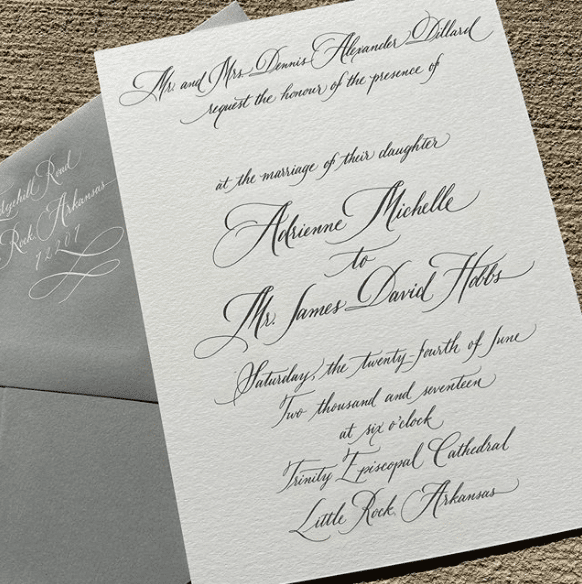 Mr. and Mrs. Dennis Alexander Dillard
request the honour of the presence of
at the marriage of their daughter
Adrienne Michelle
to
Mr. James David Hobbs
Saturday, the twenty-fourth of June
Two thousand and seventeen
at six o'clock
Trinity Episcopal Cathedral
Little Rock, Arkansas
Road
Rock, Arkansas
72207